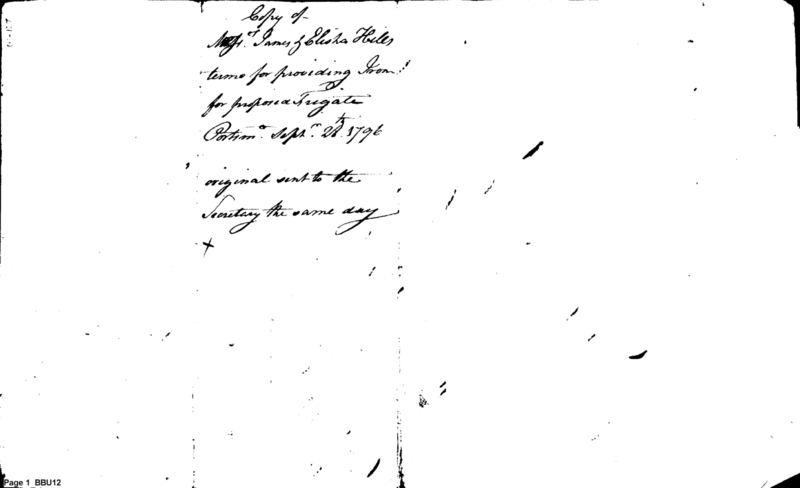 Copy of
Messrs. James & Elisha Hills
terms for providing Iron
for proposed Frigate
Portsmo. Septr. 28th 1796
original sent to the
Secretary the same day
x
Page 1 BBU12